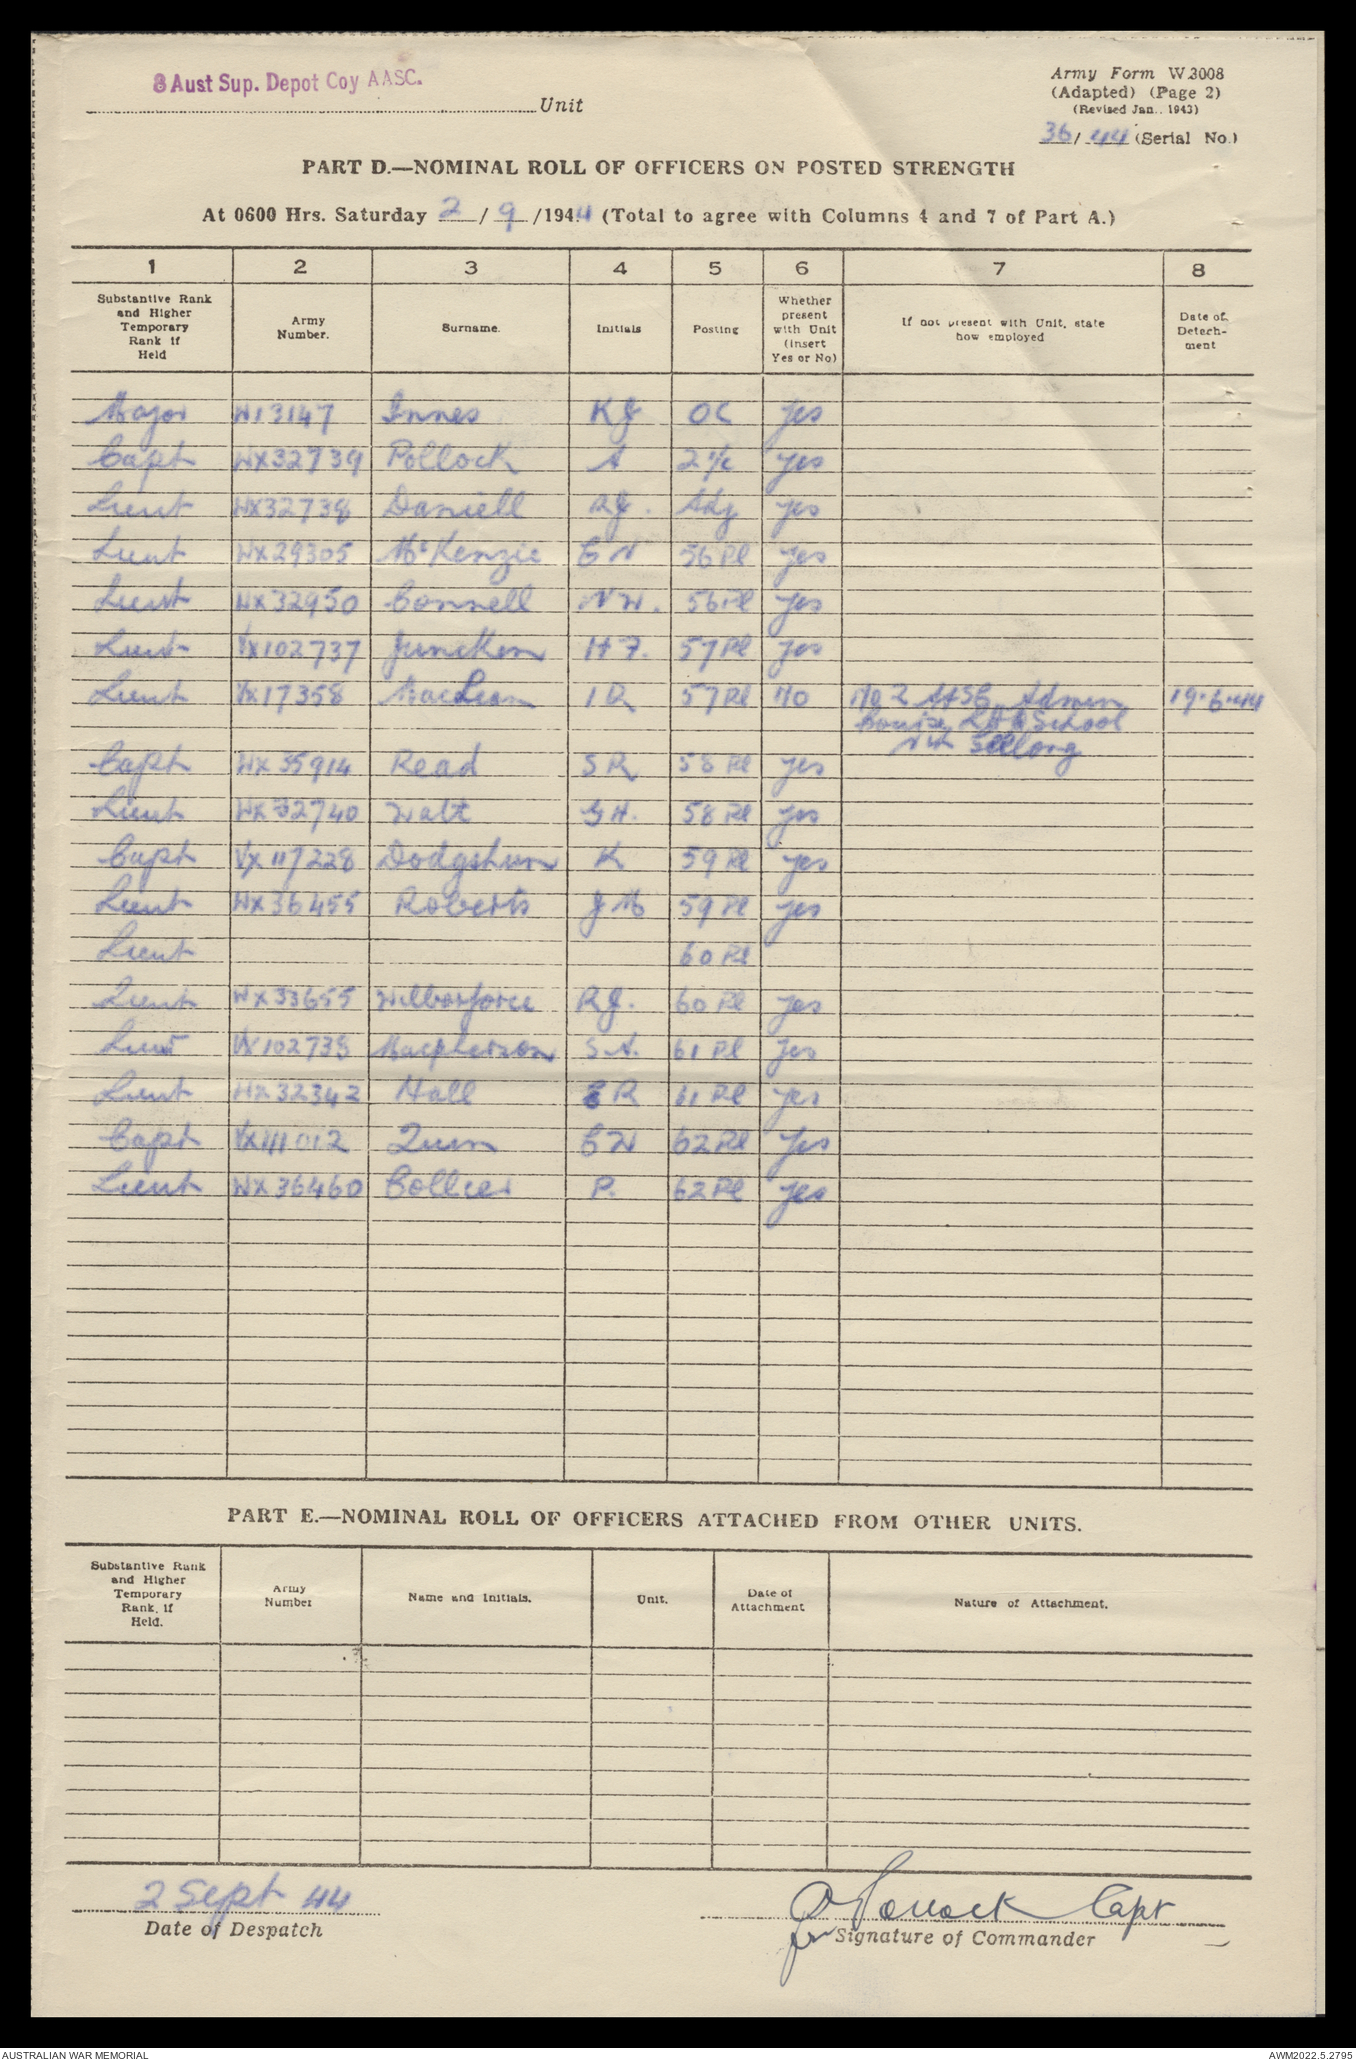 8 Aust Sup. Depot Coy AASC.
Unit
Army Form W.3008
(Adapted) (Page 2)
(Revised Jan., 1943)
36/44 (Serial No.)
PART D.—NOMINAL ROLL OF OFFICERS ON POSTED STRENGTH
At 0600 Hrs. Saturday 2/9/1944 (Total to agree with Columns 4 and 7 of Part A.)
1 2 3 4 5 6 7 8
Substantive Rank and Higher Temporary Rank if Held
Army Number.
Surname.
Initials
Posting
Whether present with Unit (Insert Yes or No)
If not present with Unit, state how employed
Date of Detachment
Major W13147 Innes KJ OC yes
Capt WX32739 Pollock A 2 i/c yes
Lieut WX32738 Daniell RJ. Adj yes
Lieut WX29305 McKenzie C N 56 Pl yes
Lieut WX32950 Connell N W. 56 Pl yes
Lieut VX102737 Juncken H F. 57 Pl yes
Lieut VX17358 MacLean I R 57 Pl No No 2 Admin 19.6.44
Course LHQ School
Capt WX35914 Read S R 58 Pl yes
Lieut WX32740 Watt G H. 58 Pl yes
Capt VX117228 Dodgshun K 59 Pl yes
Lieut WX36455 Roberts J M 59 Pl yes
Lieut 60 Pl
Lieut WX33655 Wilberforce RJ. 60 Pl yes
Lieut VX102738 Macpherson S A. 61 Pl yes
Lieut WX32342 Hall R 61 Pl yes
Capt VX111012 Quin C W 62 Pl yes
Lieut WX36460 Collier P. 62 Pl yes
PART E.—NOMINAL ROLL OF OFFICERS ATTACHED FROM OTHER UNITS.
Substantive Rank and Higher Temporary Rank, if Held.
Army Number
Name and Initials.
Unit.
Date of Attachment
Nature of Attachment.
2 Sept 44
Date of Despatch
A Pollock Capt
for Signature of Commander
AUSTRALIAN WAR MEMORIAL
AWM2022.5.2795